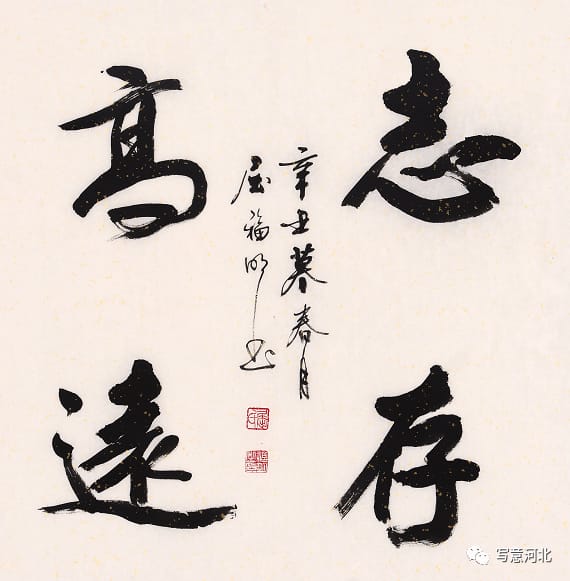 志存
高遠
辛丑暮春月
屈福明书
写意河北